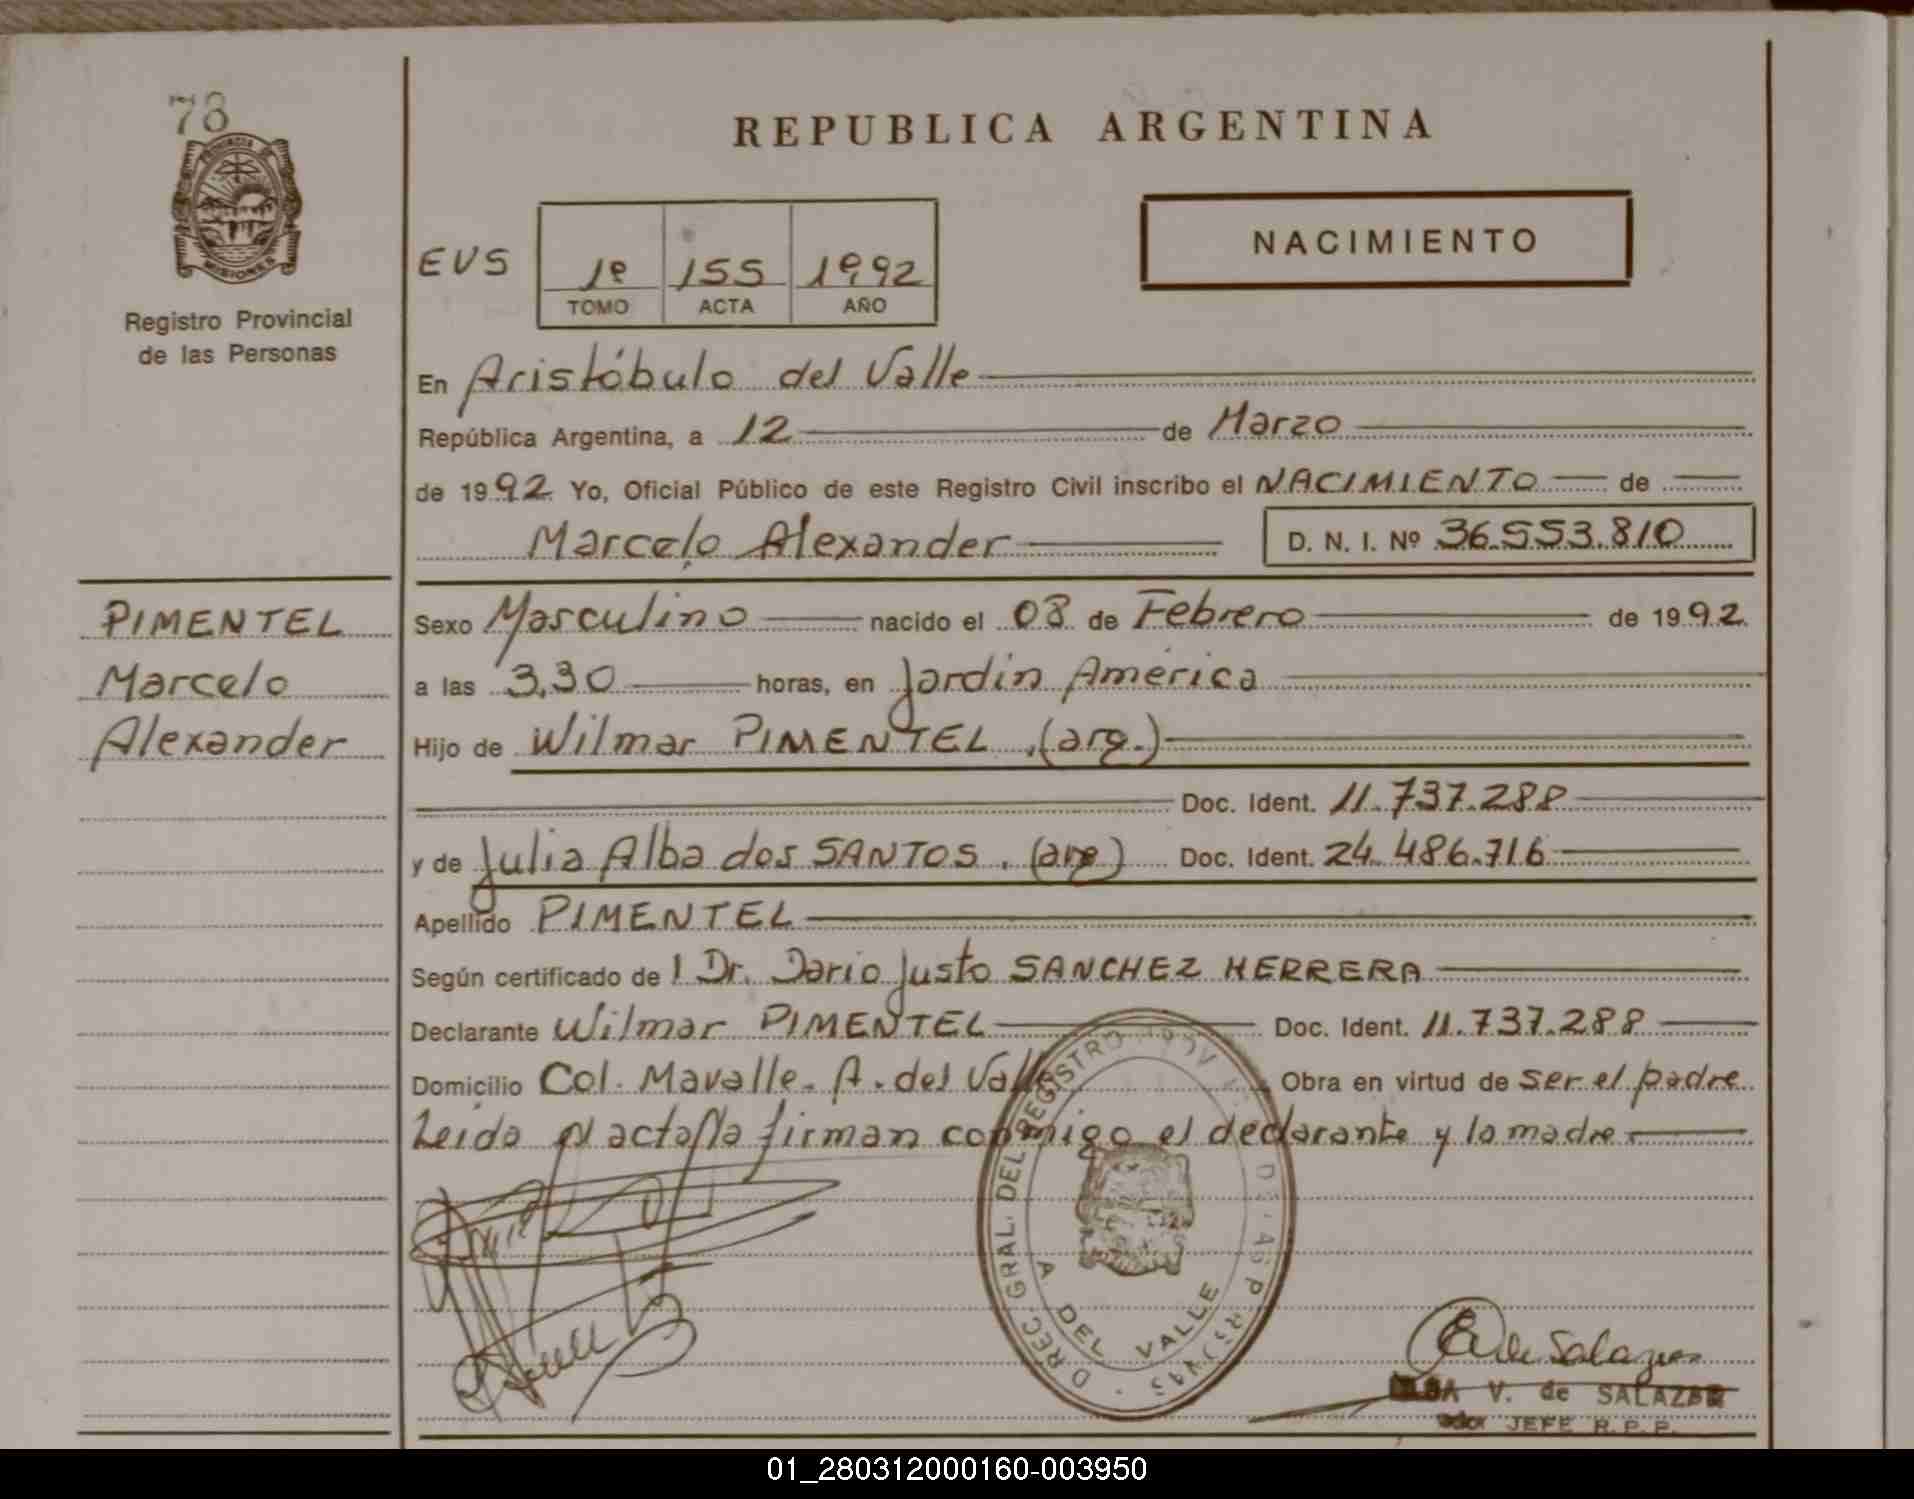 78
PROVINCIA DE
MISIONES
Registro Provincial
de las Personas
REPUBLICA ARGENTINA
EVS
1º 155 1992
TOMO ACTA AÑO
NACIMIENTO
En Aristóbulo del Valle
República Argentina, a 12 de Marzo
de 1992 Yo, Oficial Público de este Registro Civil inscribo el NACIMIENTO de
Marcelo Alexander D. N. I. Nº 36.553.810
PIMENTEL
Marcelo
Alexander
Sexo Masculino nacido el 08 de Febrero de 1992
a las 3,30 horas, en Jardín América
Hijo de Wilmar PIMENTEL .(arg.)
Doc. Ident. 11.737.288
y de Julia Alba dos SANTOS . (arg) Doc. Ident. 24.486.716
Apellido PIMENTEL
Según certificado de l Dr. Dario Justo SANCHEZ HERRERA
Declarante Wilmar PIMENTEL Doc. Ident. 11.737.288
Domicilio Col. Mavalle. A. del Valle Obra en virtud de ser el padre
Leída el acta la firman conmigo el declarante y la madre
GRAL. DEL REGISTRO
A DEL VALLE
de Salazar
V. de SALAZAR
JEFE R.P.P.
01_280312000160-003950